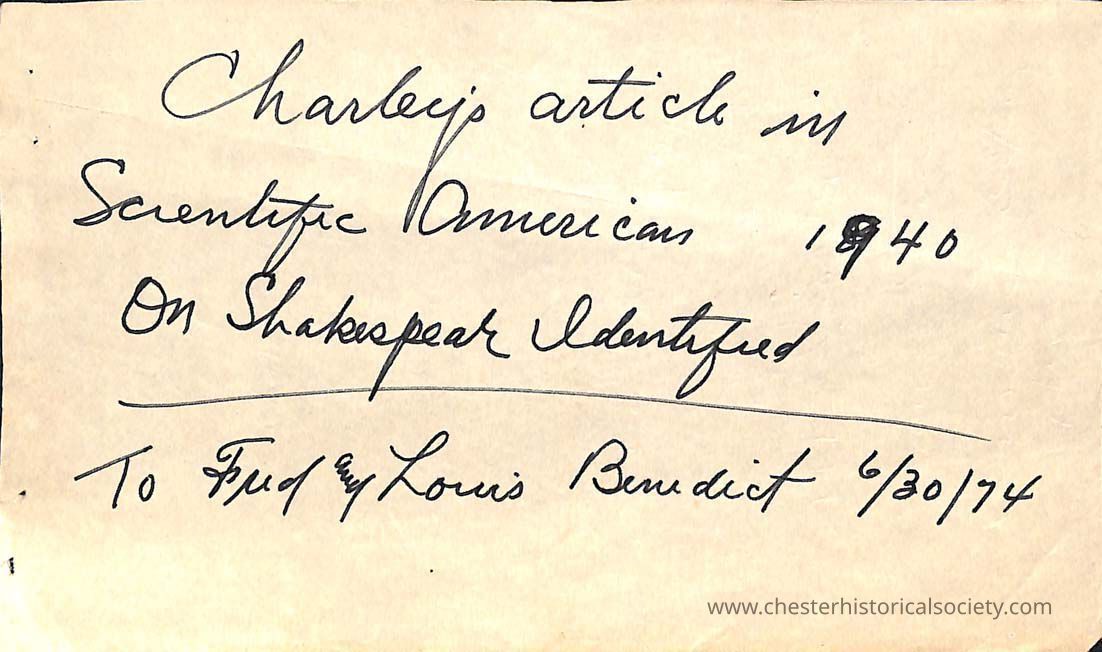 Charley's article in
Scientific American 1940
On Shakespear Identified
To Fred and Louis Benedict 6/30/74
www.chesterhistoricalsociety.com